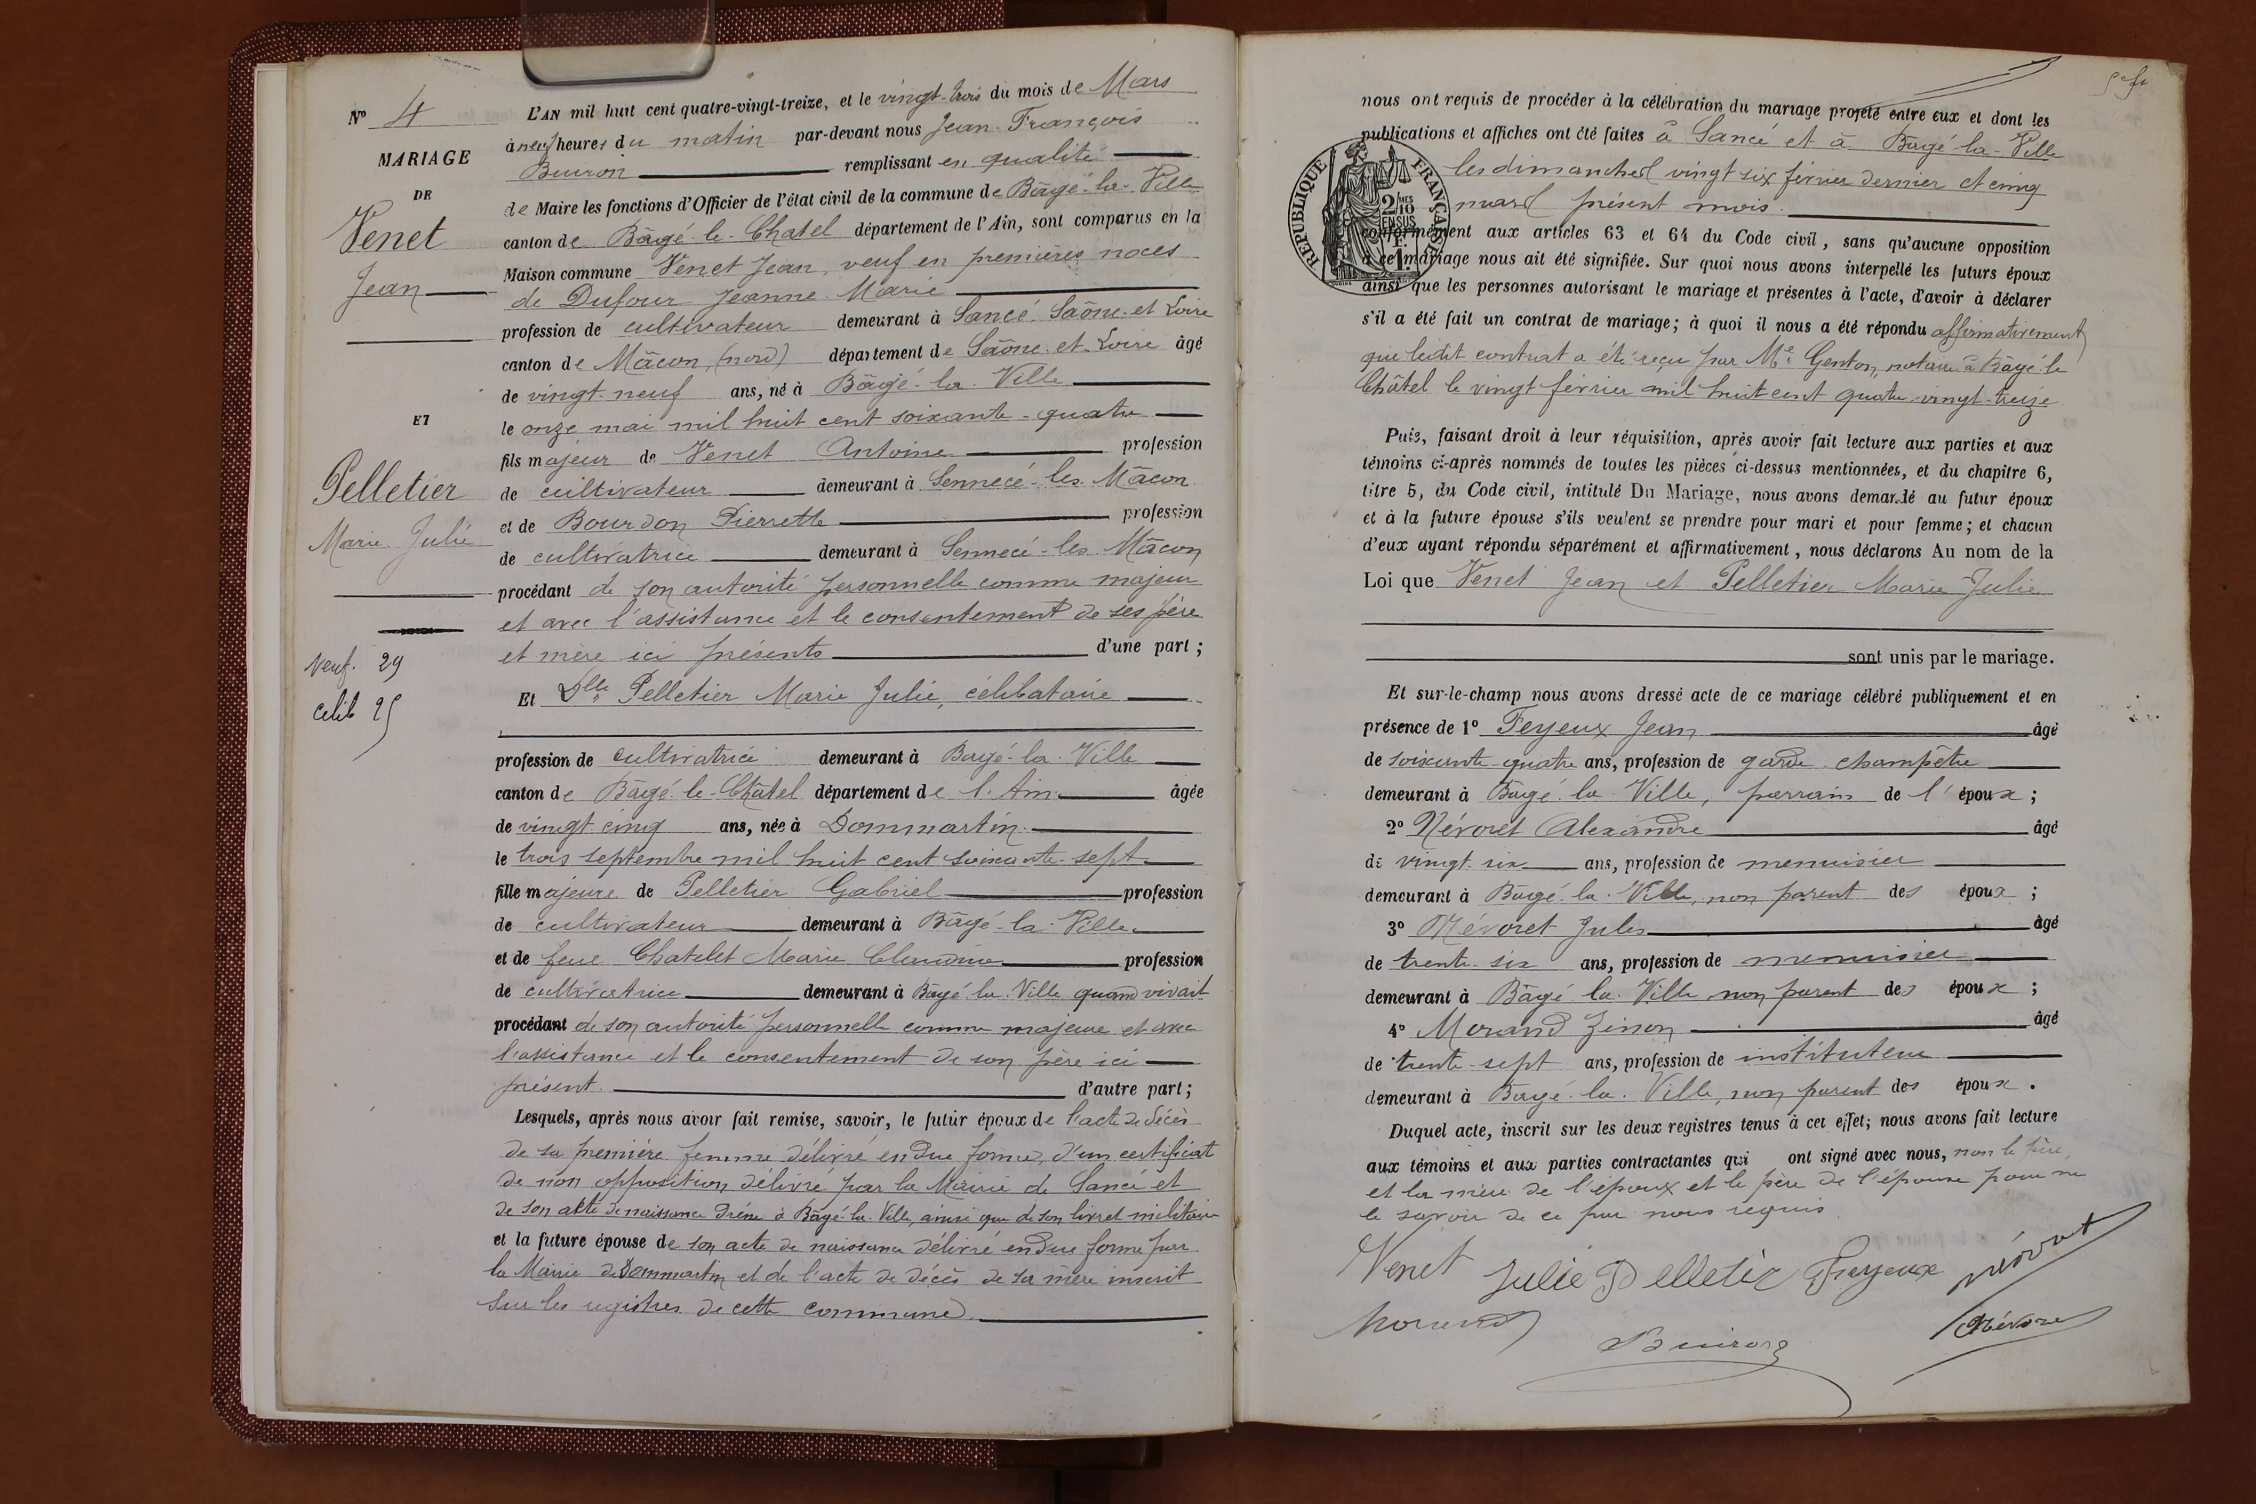 Nº 4
MARIAGE
DE
Venet
Jean
ET
Pelletier
Marie Julie
veuf. 29
célib 25
L'AN mil huit cent quatre-vingt-treize, et le vingt-trois du mois de Mars
à neuf heures du matin par-devant nous Jean-François
Buiron remplissant en qualité
de Maire les fonctions d'Officier de l'état civil de la commune de Bâgé-la-Ville
canton de Bâgé-le-Chatel département de l'Ain, sont comparus en la
Maison commune Venet Jean, veuf en premières noces
de Dufour Jeanne Marie
profession de cultivateur demeurant à Sancé Saône-et-Loire
canton de Mâcon, (nord) département de Saône-et-Loire âgé
de vingt-neuf ans, né à Bâgé-la-Ville
le onze mai mil huit cent soixante-quatre
fils majeur de Venet Antoine profession
de cultivateur demeurant à Sennecé-les-Mâcon
et de Bourdon Pierrette profession
de cultivatrice demeurant à Sennecé-les-Mâcon
procédant de son autorité personnelle comme majeur
et avec l'assistance et le consentement de ses père
et mère ici présents d'une part ;
Et Dlle Pelletier Marie Julie, célibataire
profession de cultivatrice demeurant à Bagé-la-Ville
canton de Bâgé-le-Châtel département de l'Ain âgée
de vingt cinq ans, née à Dommartin
le trois septembre mil huit cent soixante-sept
fille majeure de Pelletier Gabriel profession
de cultivateur demeurant à Bâgé-la-Ville
et de feue Chatelet Marie Claudine profession
de cultivatrice demeurant à Bâgé-la-Ville quand vivait
procédant de son autorité personnelle comme majeure et avec
l'assistance et le consentement de son père ici
présent. d'autre part ;
Lesquels, après nous avoir fait remise, savoir, le futur époux de l'acte de décès
de sa première femme délivré en due forme, d'un certificat
de non opposition délivré par la Mairie de Sancé et
de son acte de naissance à Bâgé-la-Ville, ainsi que de son livret militaire
et la future épouse de son acte de naissance délivré en due forme par
la Mairie de Dommartin et de l'acte de décès de sa mère inscrit
sur les registres de cette commune
nous ont requis de procéder à la célébration du mariage projeté entre eux et dont les
publications et affiches ont été faites à Sancé et à Bâgé-la-Ville
les dimanches vingt six février dernier et cinq
mars présent mois.
RÉPUBLIQUE FRANÇAISE
2/10 EN SUS
1F.
conformément aux articles 63 et 64 du Code civil, sans qu'aucune opposition
à ce mariage nous ait été signifiée. Sur quoi nous avons interpellé les futurs époux
ainsi que les personnes autorisant le mariage et présentes à l'acte, d'avoir à déclarer
s'il a été fait un contrat de mariage ; à quoi il nous a été répondu affirmativement
que ledit contrat a été reçu par Me Genton, notaire à Bâgé-le
Châtel le vingt février mil huit cent quatre-vingt-treize
Puis, faisant droit à leur réquisition, après avoir fait lecture aux parties et aux
témoins ci-après nommés de toutes les pièces ci-dessus mentionnées, et du chapitre 6,
titre 5, du Code civil, intitulé Du Mariage, nous avons demandé au futur époux
et à la future épouse s'ils veulent se prendre pour mari et pour femme ; et chacun
d'eux ayant répondu séparément et affirmativement, nous déclarons Au nom de la
Loi que Venet Jean et Pelletier Marie Julie
sont unis par le mariage.
Et sur-le-champ nous avons dressé acte de ce mariage célébré publiquement et en
présence de 1º Feyeux Jean âgé
de soixante-quatre ans, profession de garde-champêtre
demeurant à Bâgé-la-Ville, parrain de l'époux ;
2º Névoret Alexandre âgé
de vingt-six ans, profession de menuisier
demeurant à Bâgé-la-Ville, non parent des époux ;
3º Névoret Jules âgé
de trente-six ans, profession de menuisier
demeurant à Bâgé-la-Ville non parent des époux ;
4º Morand Zénon âgé
de trente-sept ans, profession de instituteur
demeurant à Bâgé-la-Ville, non parent des époux.
Duquel acte, inscrit sur les deux registres tenus à cet effet ; nous avons fait lecture
aux témoins et aux parties contractantes qui ont signé avec nous, non le père,
et la mère de l'époux et le père de l'épouse pour ne
le savoir de ce par nous requis
Venet Julie Pelletier Feyeux
Morand Buiron